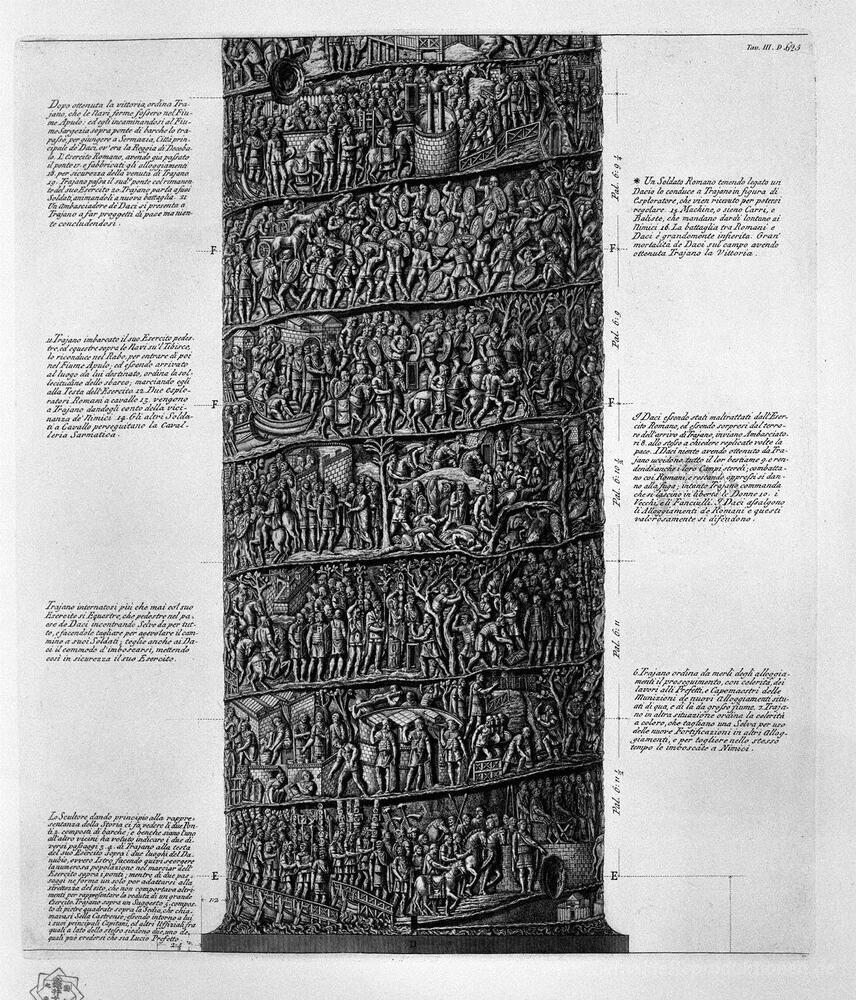 Tav. III. D
Dopo ottenuta la vittoria, ordina Tra-
jano, che le Navi ferme fossero nel Fiu-
me Apulo: ed egli incaminandosi al Fiu-
me Sargezia sopra ponte di barche lo tra-
passò, per giungere a Sermazia, Città prin-
cipale de' Daci, ov' era la Reggia di Deceba-
lo. L'Esercito Romano, avendo già passato
il ponte 17. e fabbricati gli alloggiamenti
18. per sicurezza della venuta di Trajano
19. Trajano passa il sud.º ponte col rimanen-
te del suo Esercito 20. Trajano parla a suoi
Soldati, animandoli a nuova battaglia. 21
Un Ambasciadore de' Daci si presenta a
Trajano a far proggetti di pace ma nien-
te concludendosi.
* Un Soldato Romano tenendo legato un
Dacio lo conduce a Trajano in figura di
Esploratore, che vien ricevuto per potersi
regolare. 15. Machine, o sieno Carri, e
Baliste, che mandano dardi lontano ai
Nimici 16. La battaglia tra Romani e
Daci è grandemente infierita. Gran'
mortalità de Daci sul campo avendo
ottenuta Trajano la Vittoria.
Pal. 6: 9
F
F
11. Trajano imbarcato il suo Esercito pedes-
tre, ed equestre sopra le Navi su'l Tibisco,
lo riconduce nel Rabo, per entrare di poi
nel Fiume Apulo; ed essendo arrivato
al luogo da lui destinato, ordina la sol-
lecitudine dello sbarco; marciando egli
alla Testa dell'Esercito 12. Due Esplo-
ratori Romani a cavallo 13. vengono
a Trajano dandogli conto della vici-
nanza de' Nimici 14. Gli altri Solda-
ti a Cavallo perseguitano la Caval-
leria Sarmatica.
Pal. 6: 9
F
F
I Daci essendo stati maltrattati dall'Eser-
cito Romano, ed essendo sorpresi dal terro-
re dell'arrivo di Trajano, inviano Ambasciato-
ri 8. allo stesso a chiedere replicate volte la
pace. I Daci niente avendo ottenuto da Tra-
jano uccidono tutto il lor bestiame 9. e ren-
dendo anche i loro Campi sterili; combatto-
no coi Romani, e restando oppressi si dan-
no alla fuga; intanto Trajano commanda
che si lascino in libertà le Donne 10. i
Vecchi, e li Fanciulli. I Daci assalgono
li Alloggiamenti de Romani e questi
valorosamente si difendono.
Pal. 6: 10 ½
Trajano internatosi più che mai col suo
Esercito sì Equestre, che pedestre nel pa-
ese de Daci incontrando Selve da per tut-
to, e facendole tagliare per agevolare il cam-
mino a suoi Soldati; toglie anche ai Da-
ci il commodo d'imboscarsi, mettendo
così in sicurezza il suo Esercito.
Pal. 6: 11
6. Trajano ordina da merli degli alloggia-
menti il proseguimento, con celerità, dei
lavori alli Prefetti, e Capomastri delle
Munizioni de nuovi Alloggiamenti situ-
ati di quà, e di là da grosso fiume. 7. Traja-
no in altra situazione ordina la celerità
a coloro, che tagliano una Selva per uso
delle nuove Fortificazioni in altri Allog-
giamenti, e per togliere nello stesso
tempo le imboscate a Nimici.
Pal. 6: 11 ½
Lo Scultore dando principio alla rappre-
sentanza della Storia ci fà vedere li due Pon-
ti 2. composti di barche; e benche siano l'uno
all'altro vicini ha voluto indicare i due di-
versi passaggi 3. 4. di Trajano alla testa
del suo Esercito sopra i due luoghi del Da-
nubio, ovvero Istro, facendo quivi scorgere
la numerosa popolazione nel marciar dell'
Esercito sopra i ponti; mentre di due pas-
saggi ne forma un solo per adattarsi alla
strettezza del sito, che non comportava altri-
menti per rappresentare la veduta di un grande
Esercito. Trajano sopra un Suggesto 5. compos-
to di pietre quadrate sopra la Sedia, che chia-
mavasi Sella Castrense; essendo intorno a lui
i suoi principali Capitani, ed altri Uffiziali fra
quali a lato dello stesso siedono due, uno de-
quali può credersi che sia Lucio Prefetto.
E
E
D